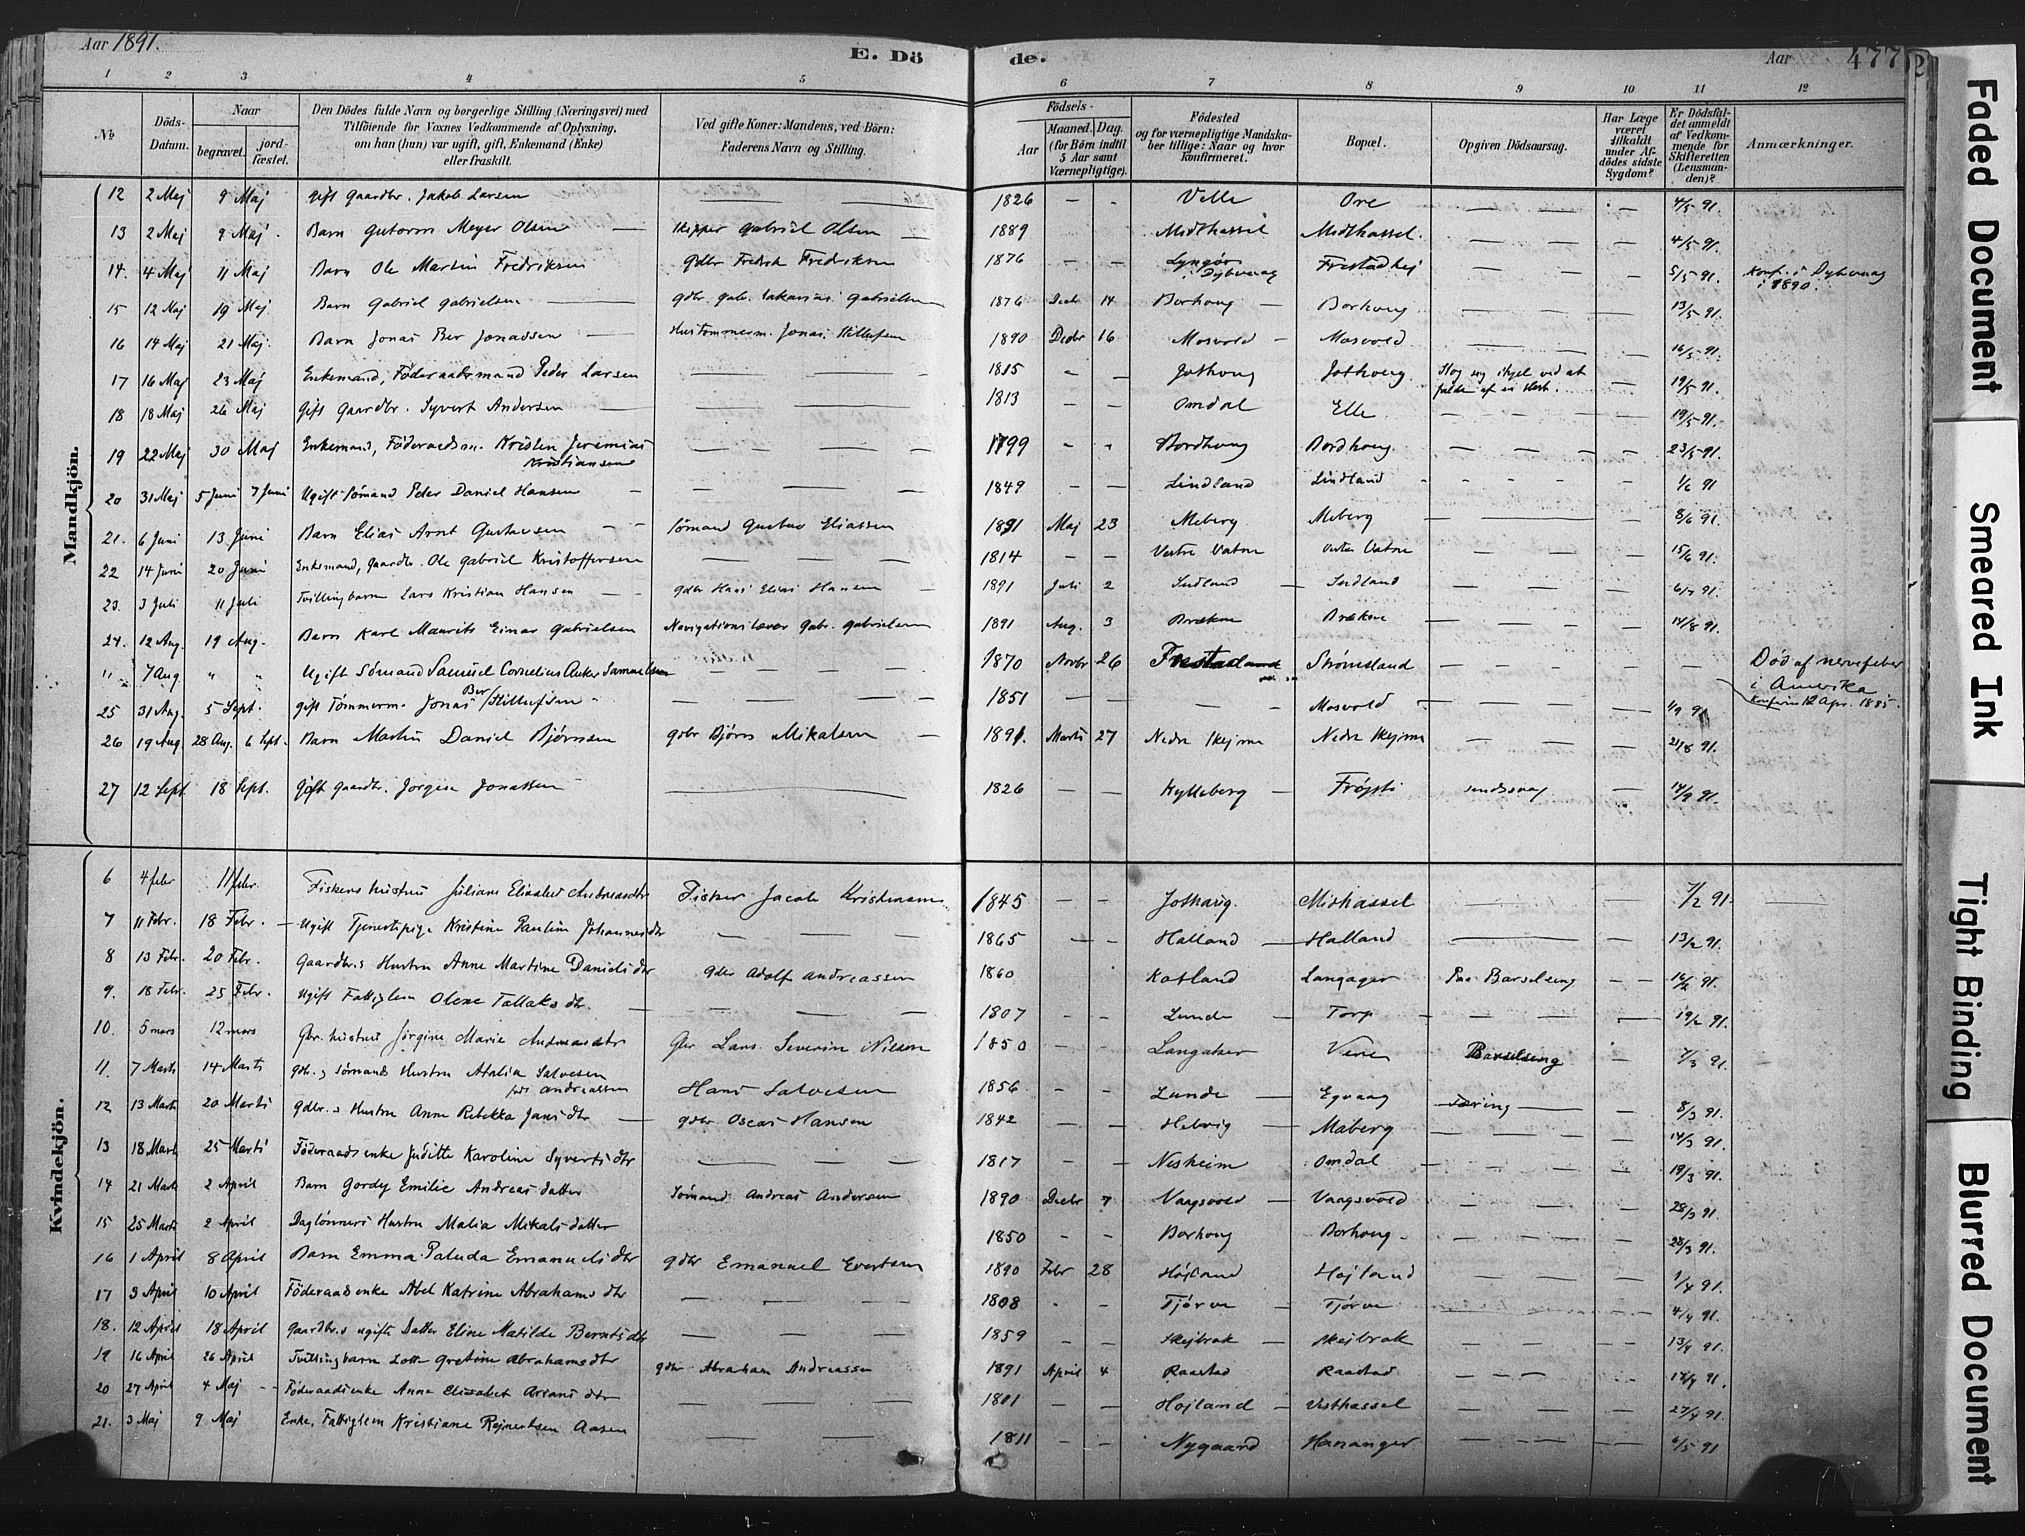 Aar 1891.
E. Dö
de.
Aar
477
1 2 3 4 5 6 7 8 9 10 11 12
No
Döds-Datum.
Naar
begravet.
jord-fæstet.
Den Dödes fulde Navn og borgerlige Stilling (Næringsvei) med
Tilföiende for Voxnes Vedkommende af Oplysning,
om han (hun) var ugift, gift, Enkemand (Enke)
eller fraskilt.
Ved gifte Koner: Mandens, ved Børn:
Faderens Navn og Stilling.
Födsels-
Aar
Maaned. Dag.
(for Börn indtil
5 Aar samt
Værnepligtige).
Födested
og for værnepligtige Mandska-
ber tillige: Naar og hvor
konfirmeret.
Bopæl.
Opgiven Dödsaarsag.
Har Læge
været
tilkaldt
under Af-
dödes sidste
Sygdom?
Er Dödsfal-
det anmeldt
af Vedkom-
mende for
Skifteretten
(Lensman-
den)?
Anmærkninger.
Mandkjön.
12 2 Maj 9 Maj Gift Gaardbr. Jakob Larsen — — 1826 — - Velle Ore - — 4/5 91.
13 2 Maj 9 Maj - Barn Gutorm Meyer Olsen — Skipper Gabriel Olsen — 1889 Midthassel Midthassel. — — 4/5 91.
14. 4 Maj 11 Maj Barn Ole Martin Fredriksen Gdbr Fredrik Fredriksen 1876 — - Lyngør i Dybvaag — — 5/5 91. Konf. i Dybvaag i 1890.
15 12 Maj 19 Maj. Barn Gabriel Gabrielsen — Gdbr. Gab. Sakarias Gabrielsen 1876 Decbr 14 Borhoug — Borhoug — — 13/5 91.
16 14 Maj 21 Maj. Barn Jonas Ber Jonassen — Hustømmerm. Jonas Hillefsen 1890 Decbr 16 Mosvold - Mosvold — — 16/5 91.
17 16 Maj 23 Maj Enkemand, Föderaadsmand Peder Larsen — — 1815 — — Jothoug Jothoug Slog sig ihjel ved at falde af en Hest. — 19/5 91.
18 18 Maj 26 Maj Gift Gaardbr. Syvert Andersen — — 1813 — - Omdal Elle — 19/5 91.
19 22 Maj 30 Maj Enkemand, Föderaadsm. Kristen Jeremias Kristiansen — 1799 - - Bordhoug Bordhoug. — — 23/5 91.
20 31 Maj 5 Juni 7 Juni Ugift Sømand Peder Daniel Hansen — — 1849 — - Lindland Lindland — 1/6 91
21. 6 Juni 13 Juni Barn Elias Arnt Gustavsen — - Sømand Gustav Eliassen 1891 Maj 23 Meberg Meberg — — 8/6 91.
22 14 Juni 20 Juni Enkemand, Gaardbr. Ole Gabriel Kristoffersen 1814 — - Vestre Vatne Vestre Vatne — — 15/6 91.
23. 3 Juli 11 Juli Tvillingbarn Lars Kristian Hansen — - Gdbr Hans Elias Hansen 1891 Juli 2 — — — 6/7 91.
24. 12 Aug. 19 Aug. Barn Karl Maurits Einar Gabrielsen Navigationslærer Gabr. Gabrielsen 1891 Aug. 3 Brækne Brækne — — 14/8 91.
" 7 Aug. " " Ugift Sømand Samuel Cornelius Anker Samuelsen — — 1870 Novbr 26 Strømsland — — Död af nervefeber i Amerika konfirm 12 Apr. 1885.
25 31 Aug. 5 Sept. Gift Tømmerm. Jonas Ber Hillefsen - — 1851 — — Mosvold — 1/9 91
26 19 Aug. 28 Aug. 6 Sept. Barn Martin Daniel Bjørnsen Gdbr Bjørn Mikalsen — 1891. Marts 27 Nedre Skejme Nedre Skejme — — 21/8 91.
27 12 Sept. 18 Sept. Gift Gaardbr. Jørgen Jonassen — 1826 — — Kylleberg — Frøjsti — 14/9 91.
Kvindekjön.
6 4 febr 11 febr. Fiskers hustru Juliane Elisabet Andreasdtr Fisker Jacob Kristensen 1845 — - Jothaug. Midhassel — — 7/2 91.
7 11 Febr. 18 Febr. — Ugift Tjenestepige Kristine Pauline Johannesdtr — — 1865 — - Halland — Halland — — 13/2 91.
8 13 Febr. 20 Febr. Gaardbr.s Hustru Anne Martine Danielsdtr Gdbr Adolf Andreassen 1860 Kotland Langager Paa Barselseng — — 16/2 91.
9. 18 Febr. 25 Febr. Ugift Fattiglem Olene Tallaksdtr. — — 1807 — - Lunde — Torp — — 19/2 91.
10. 5 mars 12 mars Gbr. hustru Jørgine Marie Andreasdtr Gbr Lars Severin Nilsen 1850 — - Langaker Vere Barselseng — 7/3 91.
11. 7 Marts 14 Marts Gdbr. og Sømands Hustru Atalia Salvesen født Andreassen Hans Salvesen 1856 — - Lunde — Egvaag Tæring — 8/3 91.
12 13 Marts 20 Marts Gdbr.s Hustru Anne Rebekka Jansdtr — Gdbr Oscar Hansen 1842 — — Helvig — Maberg — — 14/3 91.
13 18 Marts 25 Marts Föderaadsenke Juditte Karoline Syvertsdtr — — 1817 — — Nesheim Omdal — — 19/3 91.
14 21 Marts 2 April Barn Gordy Emilie Andreasdatter Sømand Andreas Andersen 1890 Decbr 7 Vaagsvold — Vaagsvold — — 28/3 91.
15 25 Marts 2 April Daglønners Hustru Malia Mikalsdatter 1850 — - Borhoug Borhoug. — — 28/3 91.
16 1 April 8 April Barn Emma Paluda Emanuelsdtr Gdbr Emanuel Evertsen 1890 Febr 28 Højland Højland — — 1/4 91.
17 3 April 10 April Föderaadsenke Abel Katrine Abrahamsdtr — — 1808 - - Tjørve — Tjørve — — 4/4 91.
18. 12 April 18 April Gaardbr.s ugifte Datter Eline Matilde Berntsdtr — — 1859 — Skejbrok — Skejbrok — — 13/4 91.
19 16 April 26 April Tvillingbarn Lotte Gretine Abrahamsdtr Gdbr Abraham Andreassen 1891 April 4 Raastad Raastad — — 17/4 91.
20 27 April 4 Maj — Föderaadsenke Anna Elisabet Ariansdtr — — 1801 — — Højland — Visthassel — — 27/4 91.
21. 3 Maj 9 Maj Enke, Fattiglem Kristiane Rejnertsen Aasen — — 1811 — - Nygaard Hananger — — 4/5 91
Faded Document
Smeared Ink
Tight Binding
Blurred Document